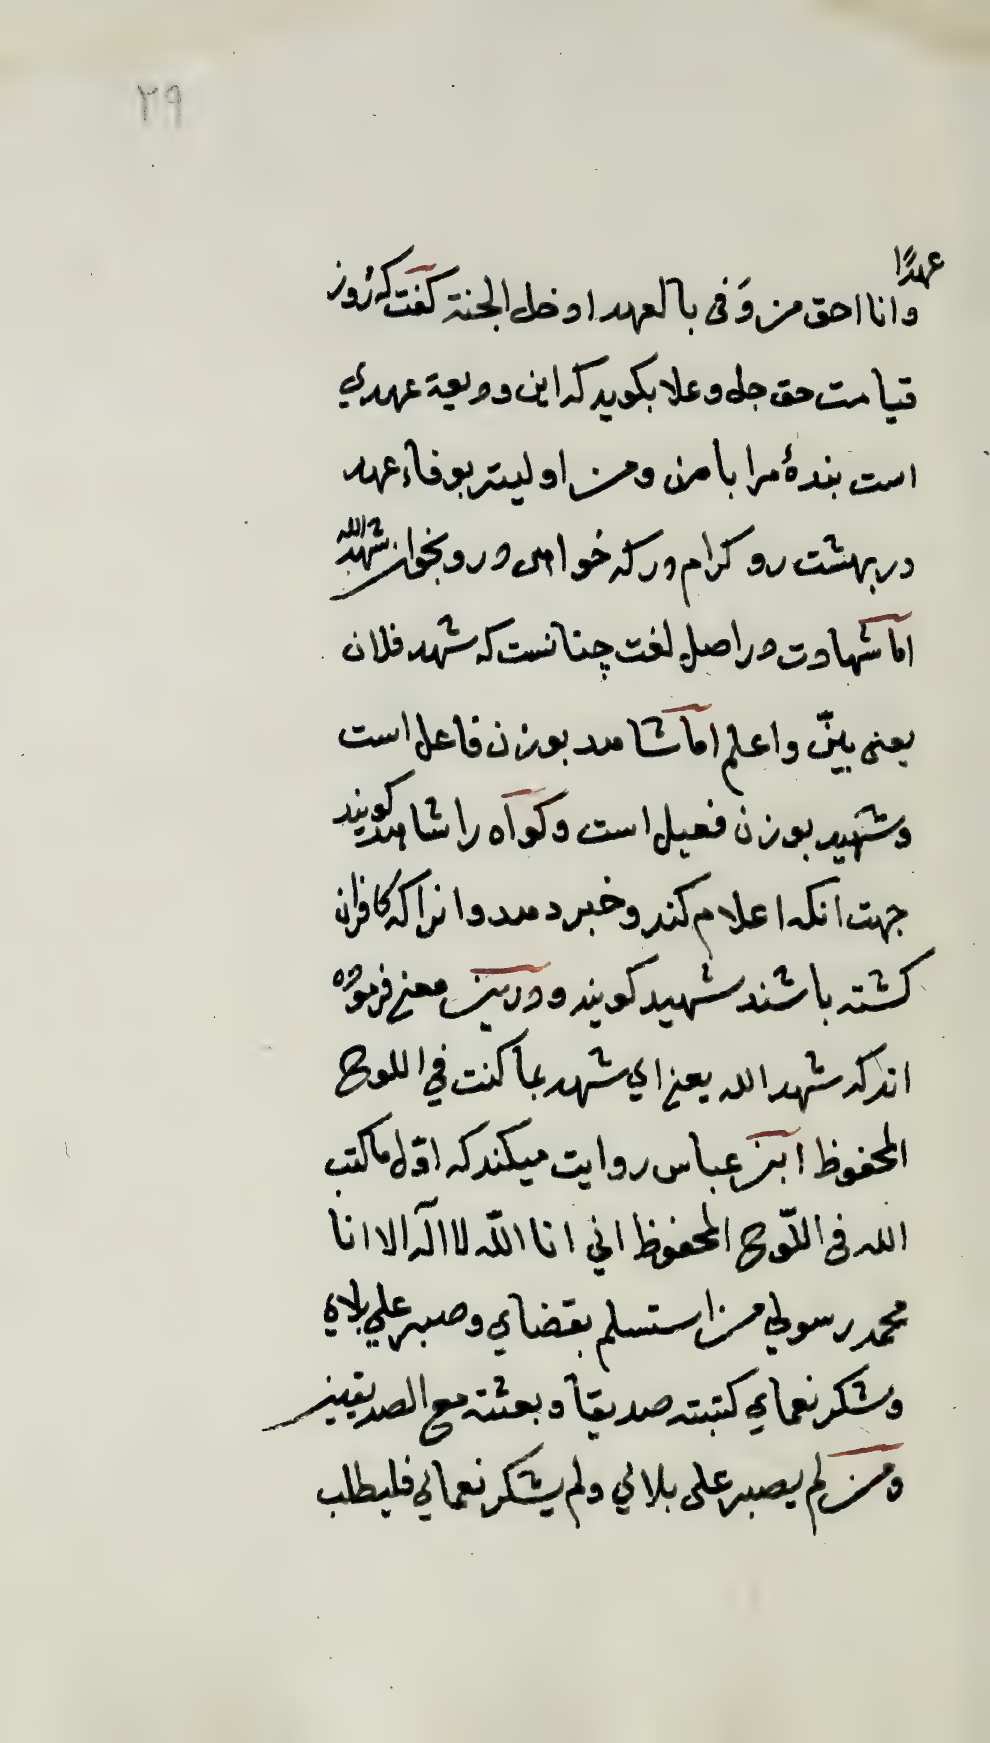 ۲۹
عهدًا
وانا احق من وَفى بالعهد ادخل الجنة كفت كه رُوز
قيامت حق جل وعلا بكويد كه اين وديعة عهدي
است بندهٔ مرا با من ومن اوليتر بوفاء عهد
در بهشت رو كرام در كه خواهى در رو بخوان شهد الله
اما شهادت در اصل لغت چنانست كه شهد فلان
يعنى بيّن واعلم اما شاهد بوزن فاعل است
وشهيد بوزن فعيل است وكواه را شاهد كويند
جهت انكه اعلام كند وخبر دهد وانرا كه كافران
كشته باشند شهيد كويند ودرين معنى فرموده
اند كه شهد الله يعنى اي شهد بما كنت في اللوح
المحفوظ ابن عباس روايت ميكند كه اوّل ما كتب
الله فى اللّوح المحفوظ اني انا اللّه لا اله الا انا
محمد رسولي من استسلم بقضاي وصبر علي بلاي
وشكر نعماي كتبته صديقا وبعثته مع الصديقين
ومن لم يصبر على بلائي ولم يشكر نعمائي فليطلب